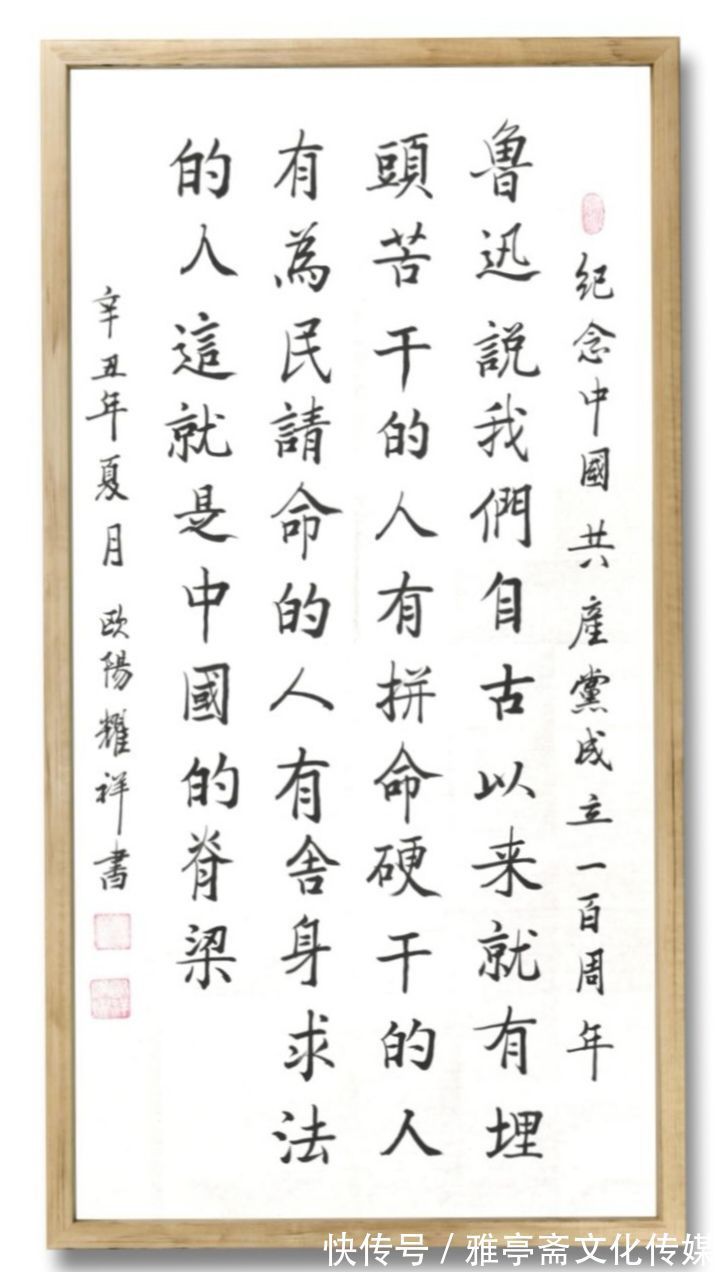 纪念中國共產黨成立一百周年
魯迅說我們自古以来就有埋
頭苦干的人有拼命硬干的人
有為民請命的人有舍身求法
的人這就是中國的脊梁
辛丑年夏月歐陽耀祥書
快传号/雅亭斋文化传媒